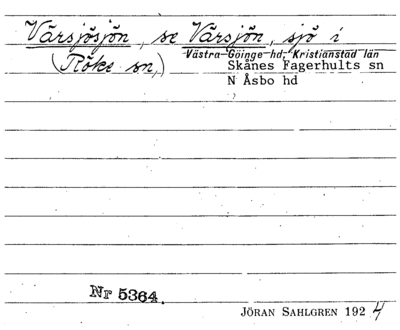 Värsjösjön, se Värsjön, sjö i
Västra Göinge hd, Kristianstad län
(Röke sn,) Skånes Fagerhults sn
N Åsbo hd
Nr 5364.
JÖRAN SAHLGREN 1924